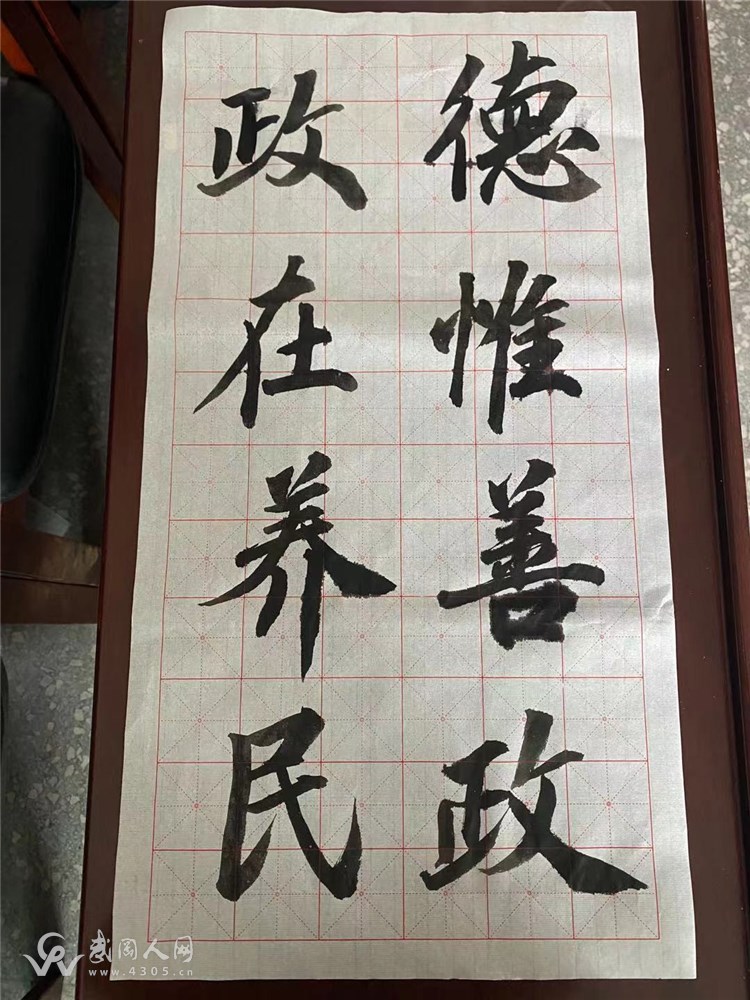 德惟善政
政在养民
武冈人网
www.4305.cn